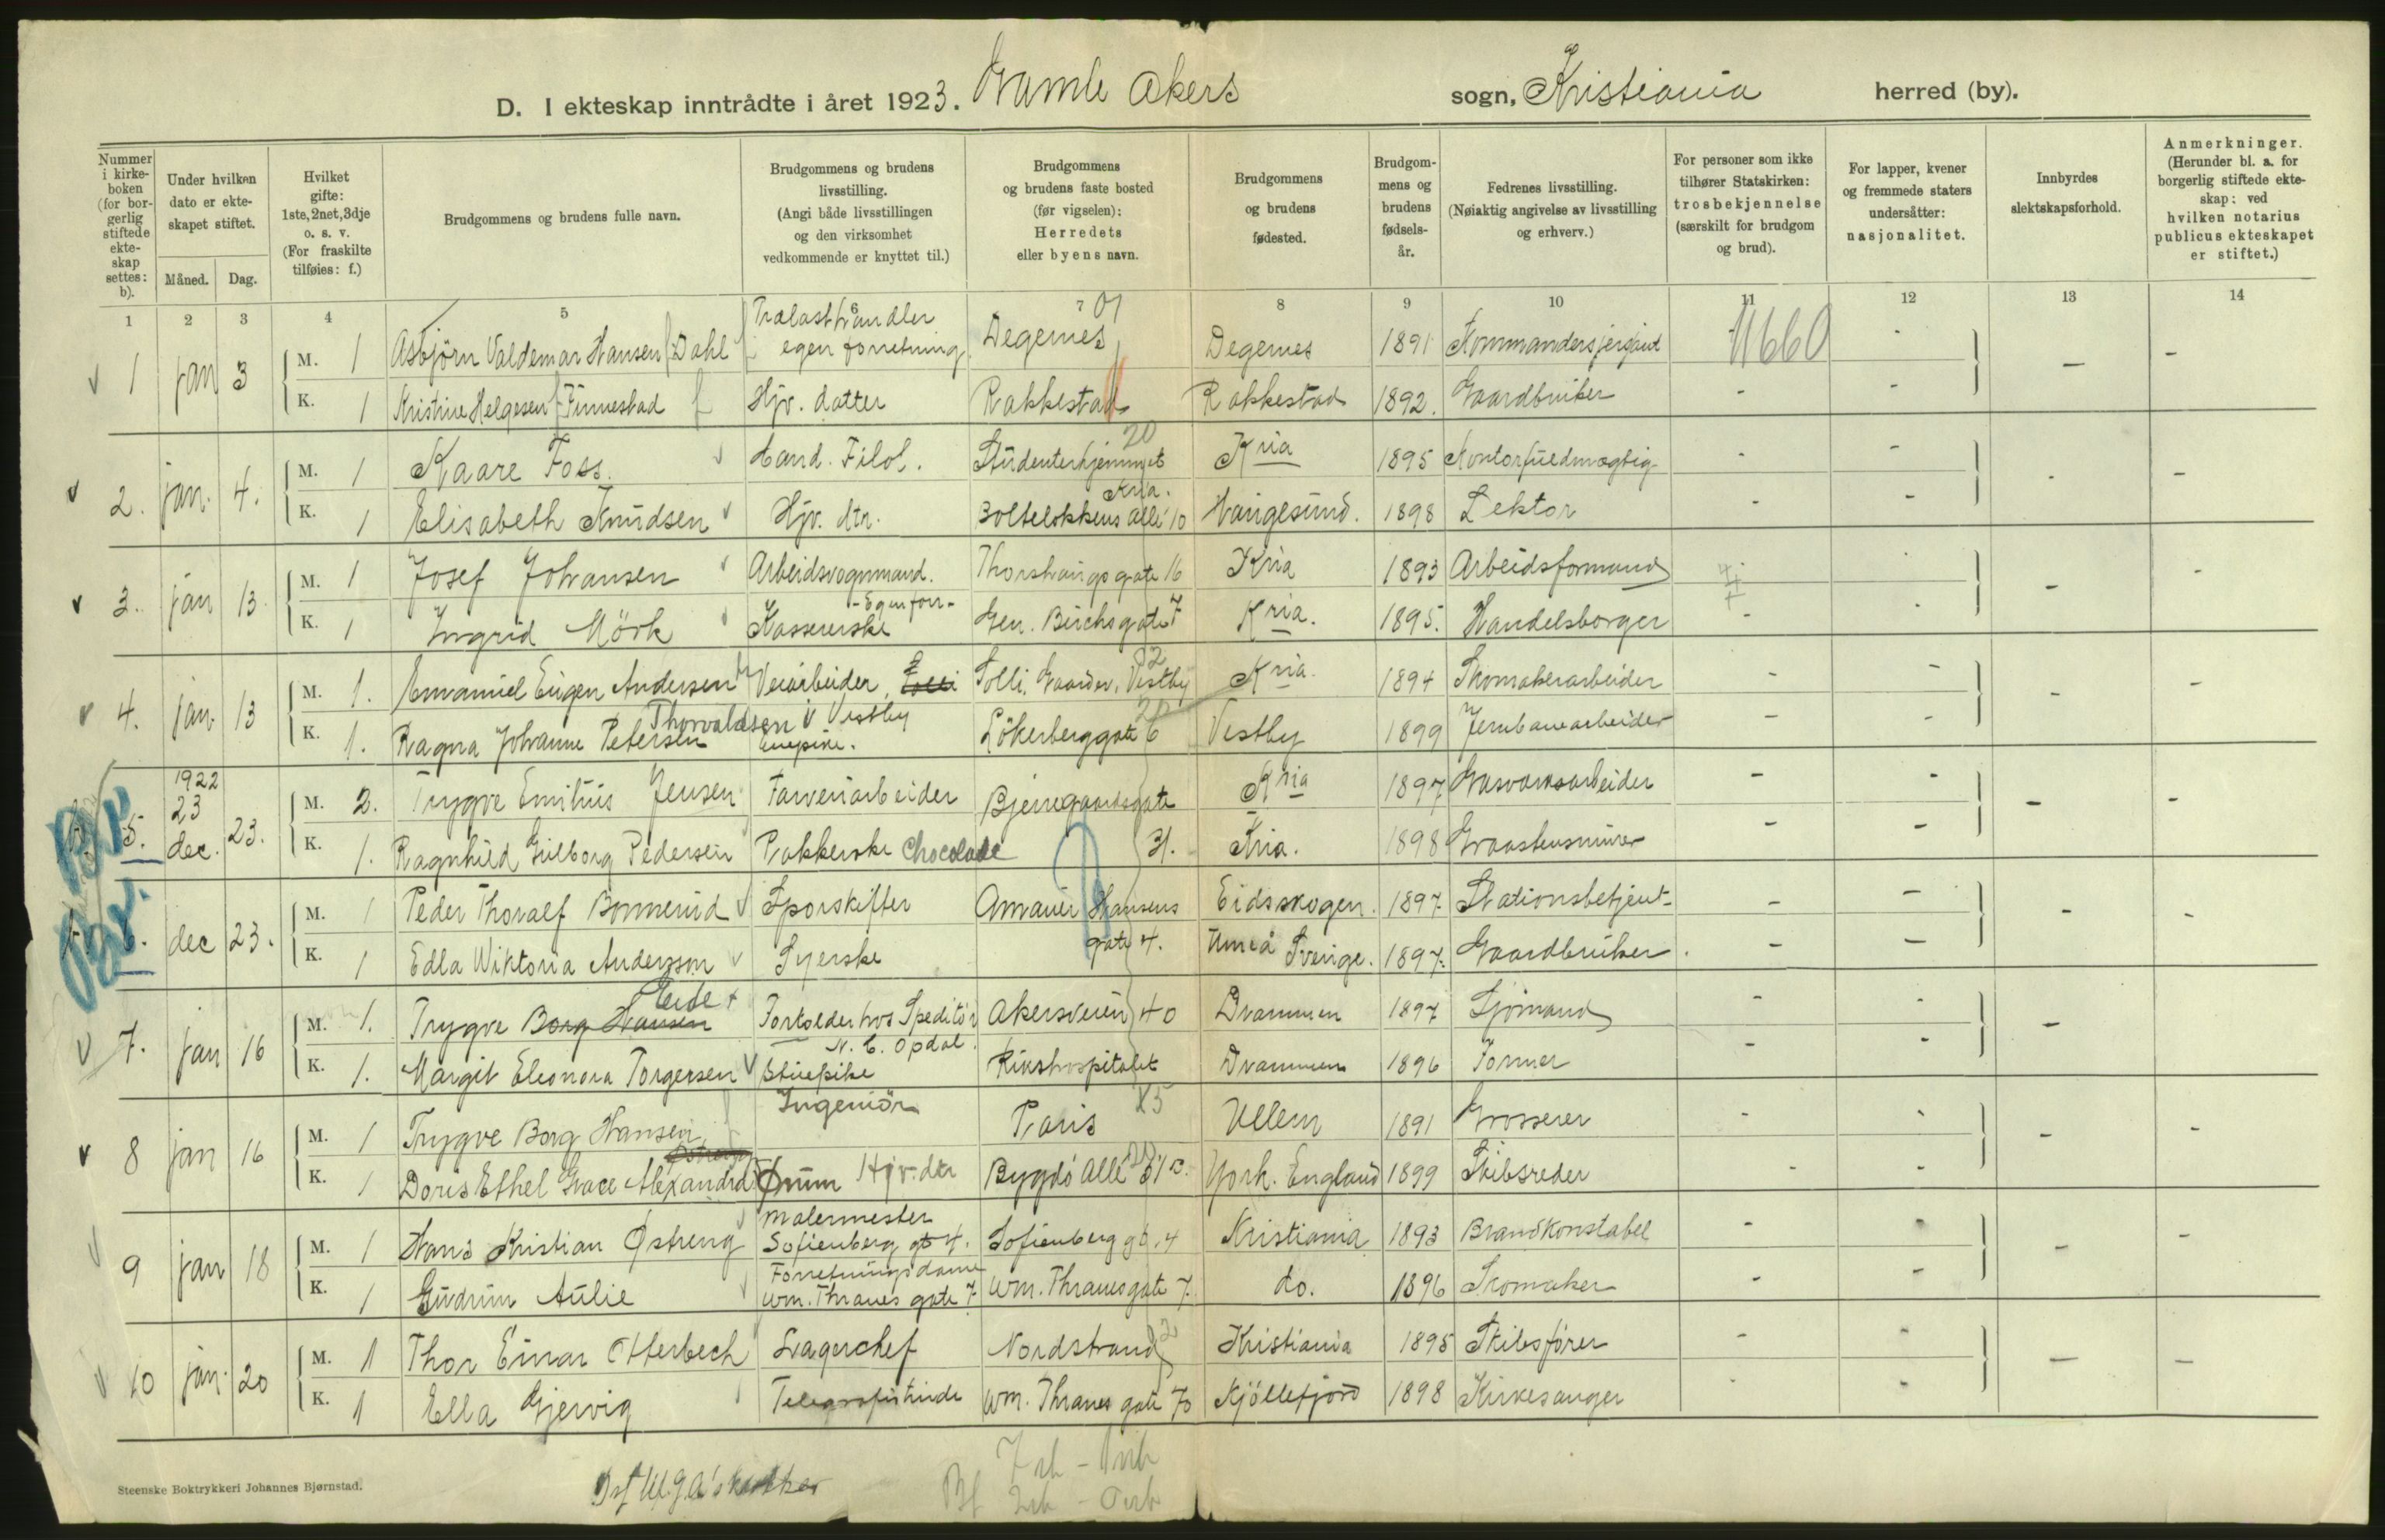 D. I ekteskap inntrådte i året 1923. Gamle Akers sogn, Kristiania herred (by).
Nummer i kirke-boken (for bor-gerlig stiftede ekte-skap settes: b).
Under hvilken dato er ekte-skapet stiftet.
Måned. Dag.
Hvilket gifte: 1ste, 2net, 3dje o. s. v. (For fraskilte tilføies: f.)
Brudgommens og brudens fulle navn.
Brudgommens og brudens livsstilling. (Angi både livsstillingen og den virksomhet vedkommende er knyttet til.)
Brudgommens og brudens faste bosted (før vigselen): Herredets eller byens navn.
Brudgommens og brudens fødested.
Brudgom-mens og brudens fødsels-år.
Fedrenes livsstilling. (Nøiaktig angivelse av livsstilling og erhverv.)
For personer som ikke tilhører Statskirken: trosbekjennelse (særskilt for brudgom og brud).
For lapper, kvener og fremmede staters undersåtter: nasjonalitet.
Innbyrdes slektskapsforhold.
Anmerkninger. (Herunder bl. a. for borgerlig stiftede ekte-skap: ved hvilken notarius publicus ekteskapet er stiftet.)
1 2 3 4 5 6 7 8 9 10 11 12 13 14
1 jan 3 M. 1 Asbjörn Valdemar Hansen Dahl Trælasthandler egen forretning Degernes 01 Degernes 1891 Kommandersjersjant 11660 - - -
K. 1 Kristine Helgesen Finnestad Hjv. datter Rakkestad Rakkestad 1892. Gaardbruker - -
2. jan. 4. M. 1 Kaare Foss. Cand. Filol. Studenterhjemmet 20 Kria 1895 Kontorfuldmægtig - - - -
K. 1 Elisabeth Knudsen Hjv. dtr. Kria. Boltelökkens alle 10 Haugesund. 1898 Lektor - -
3. jan 13. M. 1 Josef Johansen Arbeidsvognmand. - Egen forr - Thorshaugs gate 16 Kria 1893 Arbeidsformand - -
K. 1 Ingrid Mörk Kassererske Gen. Birchs gate 7 Kria. 1895. Handelsborger -
4. jan 13 M. 1. Emanuel Eugen Andersen Veiarbeider, Tolli Gaarder, Vestby 02 Kria. 1894 Skomakerarbeider - - - -
Thorvaldsen Vestby
K. 1. Ragna Johanne Petersen Enepike. Lökerberggate 6 20 Vestby 1899 Jernbanearbeider - -
5. 1922 23 dec. 23. M. 2. Trygve Emilius Jensen Farveriarbeider Bjerregaardsgate Kria 1897 Gasværksarbeider - - - -
K. 1. Ragnhild Gulborg Pedersen Pakkerske Chocolade 31. Kria. 1898 Graastensmurer - -
6. dec 23. M. 1 Peder Thoralf Bonnerud Sporskifter Amauer Hansens Eidsskogen. 1897. Stationsbetjent - - - -
K. 1 Edla Wiktoria Andersson Syerske gate 4. Umeå Sverige. 1897. Gaardbruker. - -
Eeide
7. jan 16 M. 1. Trygve Borg Hansen Forkolder hos Speditör N. C. Opdal. Akersveien 40 Drammen 1897 Sjömand - - -
K. 1. Margit Eleonora Torgersen Stuepike Rikshospitalet Drammen 1896 Former - -
8 jan 16 M. 1 Trygve Borg Hansen Ingeniör Paris 25 Ullern 1891 Grosserer - - - -
K. 1 Doris Ethel Grace Alexandra Ørum Hjv. dtr Bygdö Alle 51 B. York. England 1899 Skibsreder - -
9 jan 18 M. 1 Hans Kristian Østreng Malermester Sofienberg gt 4. Sofienberg gt. 4 Kristiania 1893 Brandkonstabel - - - -
K. 1 Gudrun Aulie Forretningsdame Wm. Thranes gate 7. Wm. Thranes gate 7. do. 1896 Skomaker - -
10 jan. 20 M. 1 Thor Einar Otterbech Lagerchef Nordstrand 2 Kristiania 1895 Skibsfører - - - -
K. 1 Ella Gjervig Telegrafistinde Wm. Thranes gate 70 Kjöllefjord 1898 Kirkesanger - -
Steenske Boktrykkeri Johannes Bjørnstad.